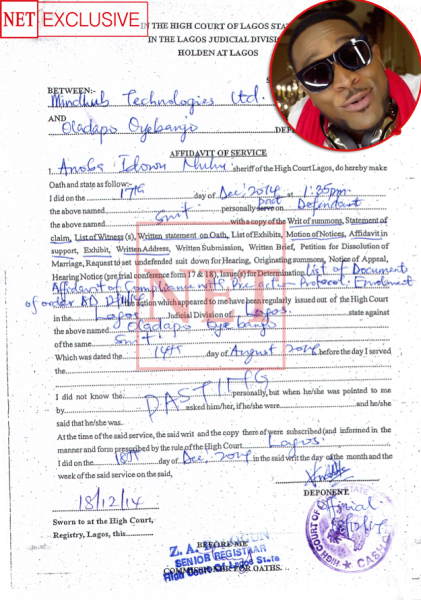 NET EXCLUSIVE
IN THE HIGH COURT OF LAGOS STA
IN THE LAGOS JUDICIAL DIVISIO
HOLDEN AT LAGOS
BETWEEN:-
Mindhub Technologies Ltd.
AND
Oladapo Oyebanjo
AFFIDAVIT OF SERVICE
I, sheriff of the High Court Lagos, do hereby make
Oath and state as follow:-
I did on the 17th day of Dec, 2014 at 1:35pm
the above named personally serve on Defendant
the above named Smit with a copy of the Writ of summons, Statement of
claim, List of Witness (s), Written statement on Oath, List of Exhibits, Motion of Notices, Affidavit in
support, Exhibit, Written Address, Written Submission, Written Brief, Petition for Dissolution of
Marriage, Request to set undefended suit down for Hearing, Originating summons, Notice of Appeal,
Hearing Notice (pre trial conference form 17 & 18), Issue(s) for Determination List of Document
Affidavit of Compliance with Pre action Protocol. Enrolment
of order AD the action which appeared to me have been regularly issued out of the High Court
in the Lagos Judicial Division of Lagos. state against
the above named Oladapo Oyebanjo
of the same Smit
Which was dated the 14th day of August 2014 before the day I served
the
NET
I did not know the personally, but when he/she was pointed to me
PASTING
by asked him/her, if he/she were and he/she
said that he/she was.
At the time of the said service, the said writ and the copy there of were subscribed (and informed in the
manner and form prescribed by the rule of the High Court Lagos.
I did on the 18th day of Dec, 2014 in the said writ the day of the month and the
week of the said service on the said,
DEPONENT
18/12/14
Sworn to at the High Court,
Registry, Lagos, this
BEFORE ME
Z. A.
SENIOR REGISTRAR
High Court Of Lagos State
COMMISSIONER FOR OATHS.
HIGH COURT OF